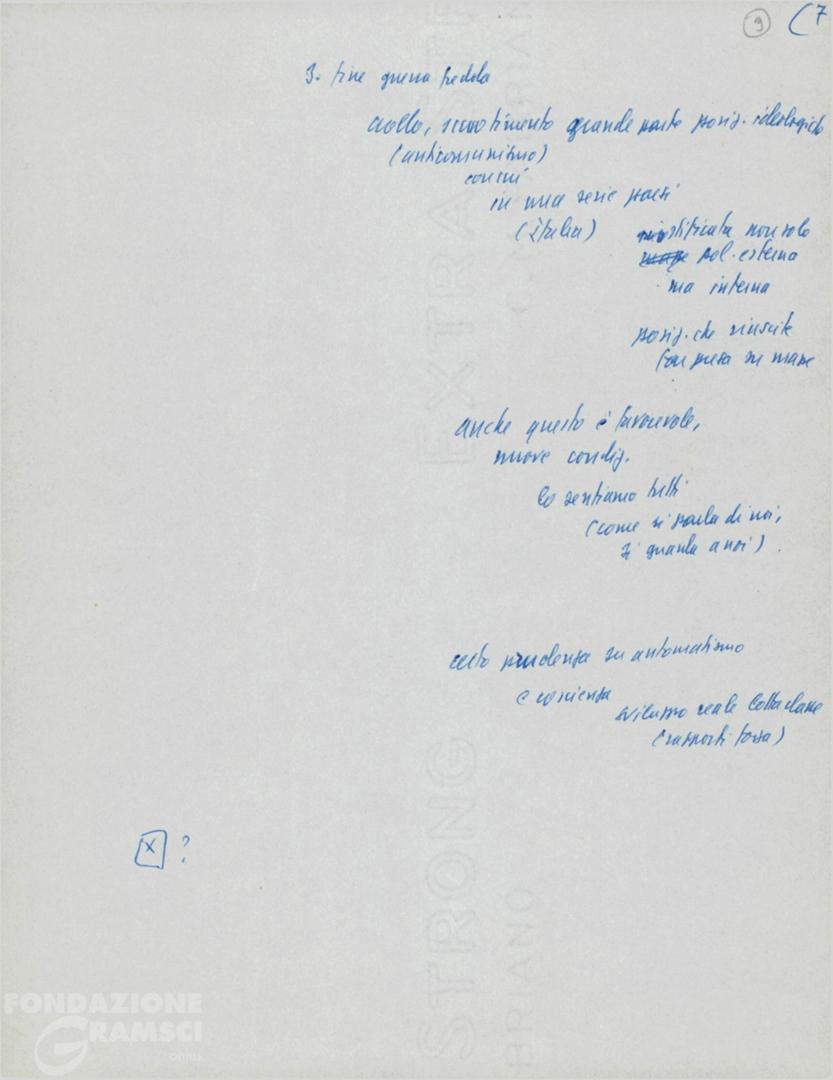 9 (7
3. fine guerra fredda
crollo, svuotimento grande parte posiz. ideologiche
(anticomunismo)
con cui
in una serie paesi
(Italia)
giustificata non solo
pol. esterna
ma interna
posiz. che riuscite
far presa su masse
anche questo è favorevole,
nuove condiz.
lo sentiamo tutti
(come si parla di noi,
si guarda a noi).
certo prudenza su automatismo
e coscienza
sviluppo reale lotta classe
(rapporti forza)
x ?
FONDAZIONE
GRAMSCI
onlus
EXTRA
STRONG
BRIANO